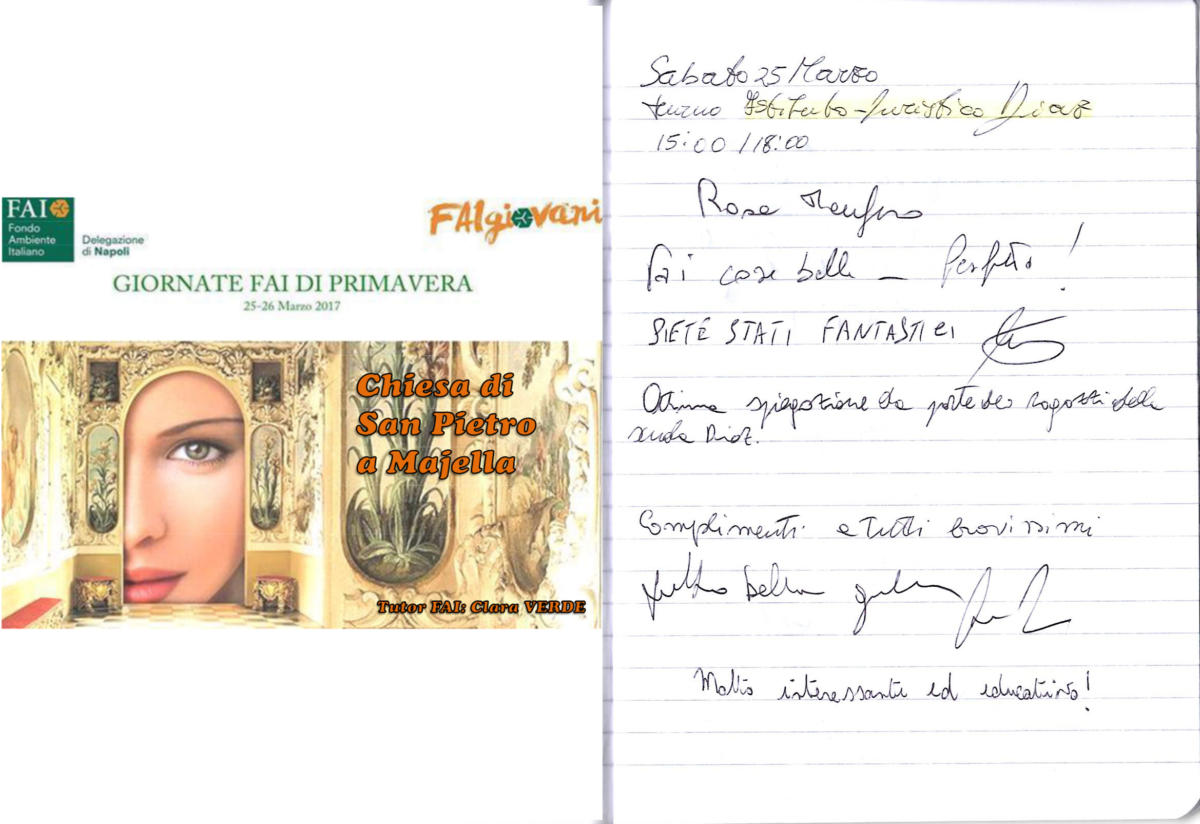 FAI
Fondo
Ambiente
Italiano
Delegazione
di Napoli
FAIgiovani
GIORNATE FAI DI PRIMAVERA
25-26 Marzo 2017
Chiesa di
San Pietro
a Majella
Tutor FAI: Clara VERDE
Sabato 25 Marzo
turno Istituto Turistico Diaz
15:00 / 18:00
Rosa
Fai cose belle – Perfetto!
SIETE STATI FANTASTICI
Ottima spiegazione da parte dei ragazzi della
scuola Diaz.
Complimenti a tutti bravissimi
Molto interessante ed educativo!